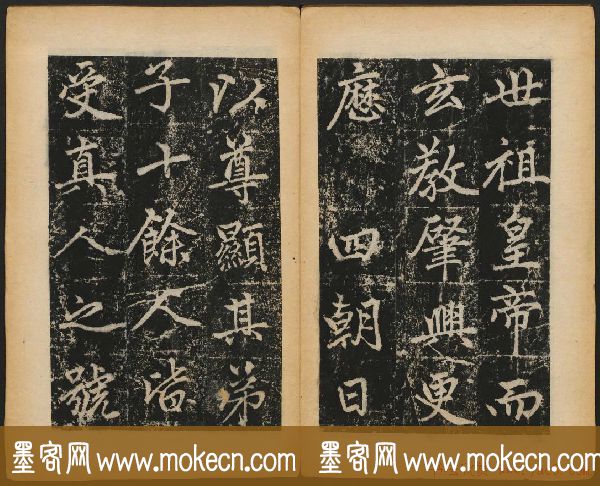 世祖皇帝而
玄教肇興更
歷四朝日
以尊顯其弟
子十餘人皆
受真人之號
墨客网 www.mokecn.com 墨客网 www.mokecn.com